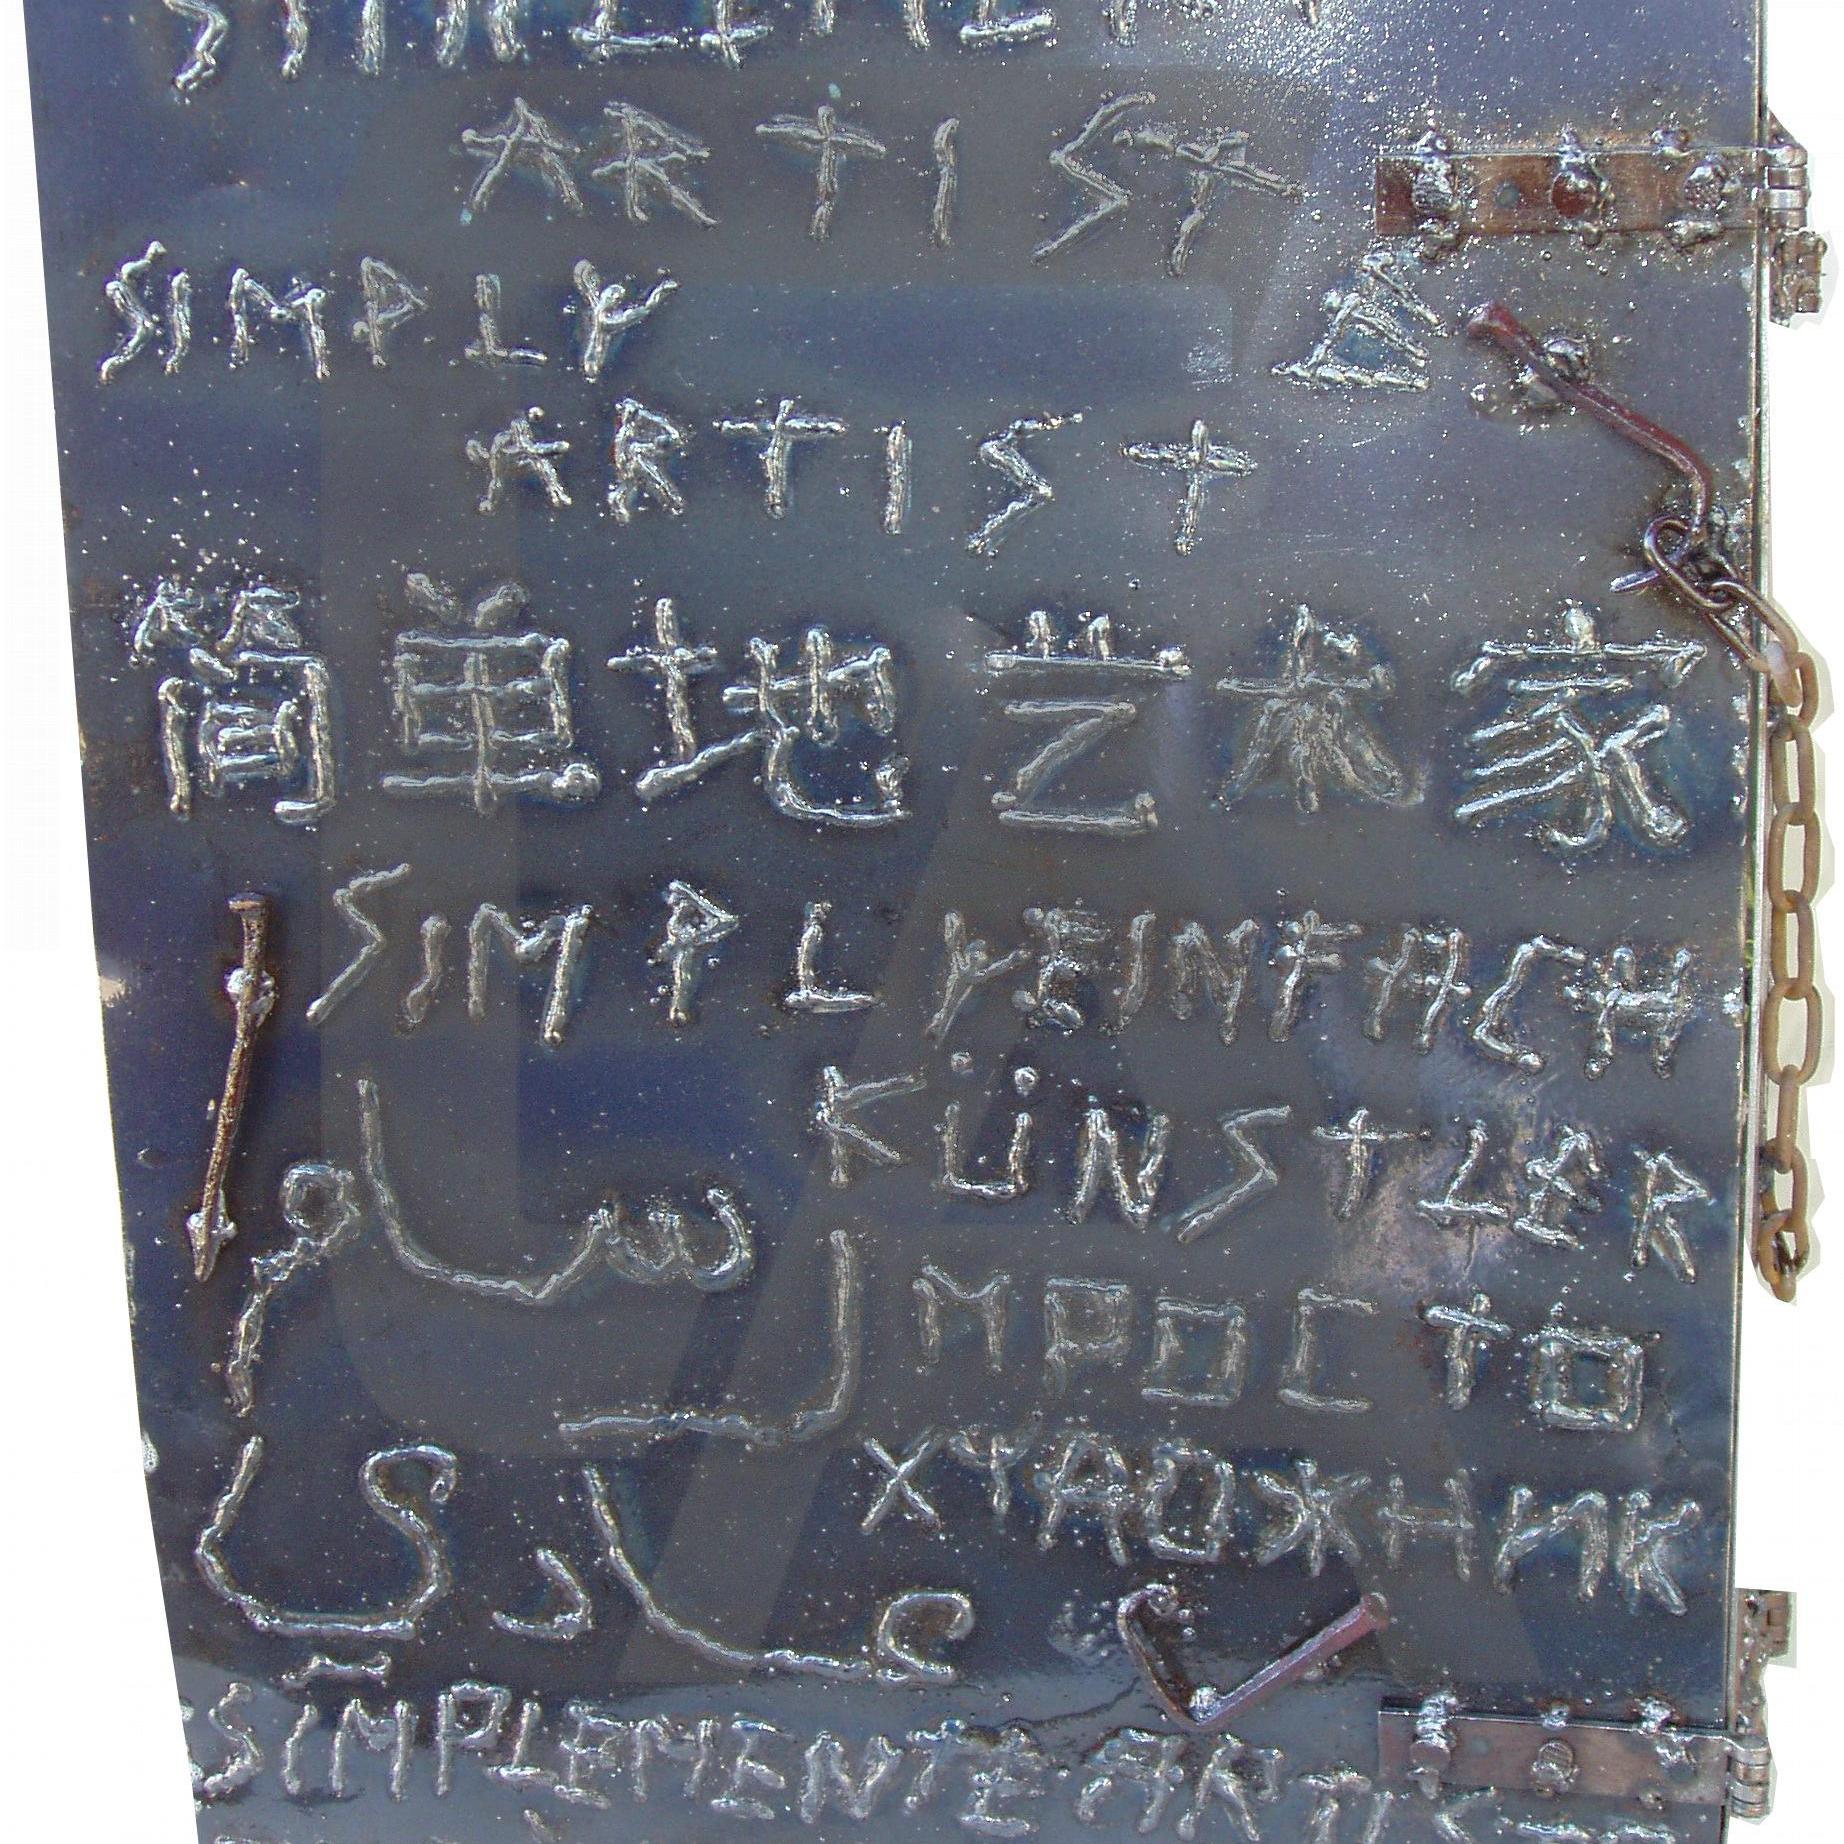 ARTIST
SIMPLY E
ARTIST
简单地艺术家
SIMPLY EINFACH
KÜNSTLER
ПРОСТО
ХУДОЖНИК
SIMPLEMENTE ARTIS